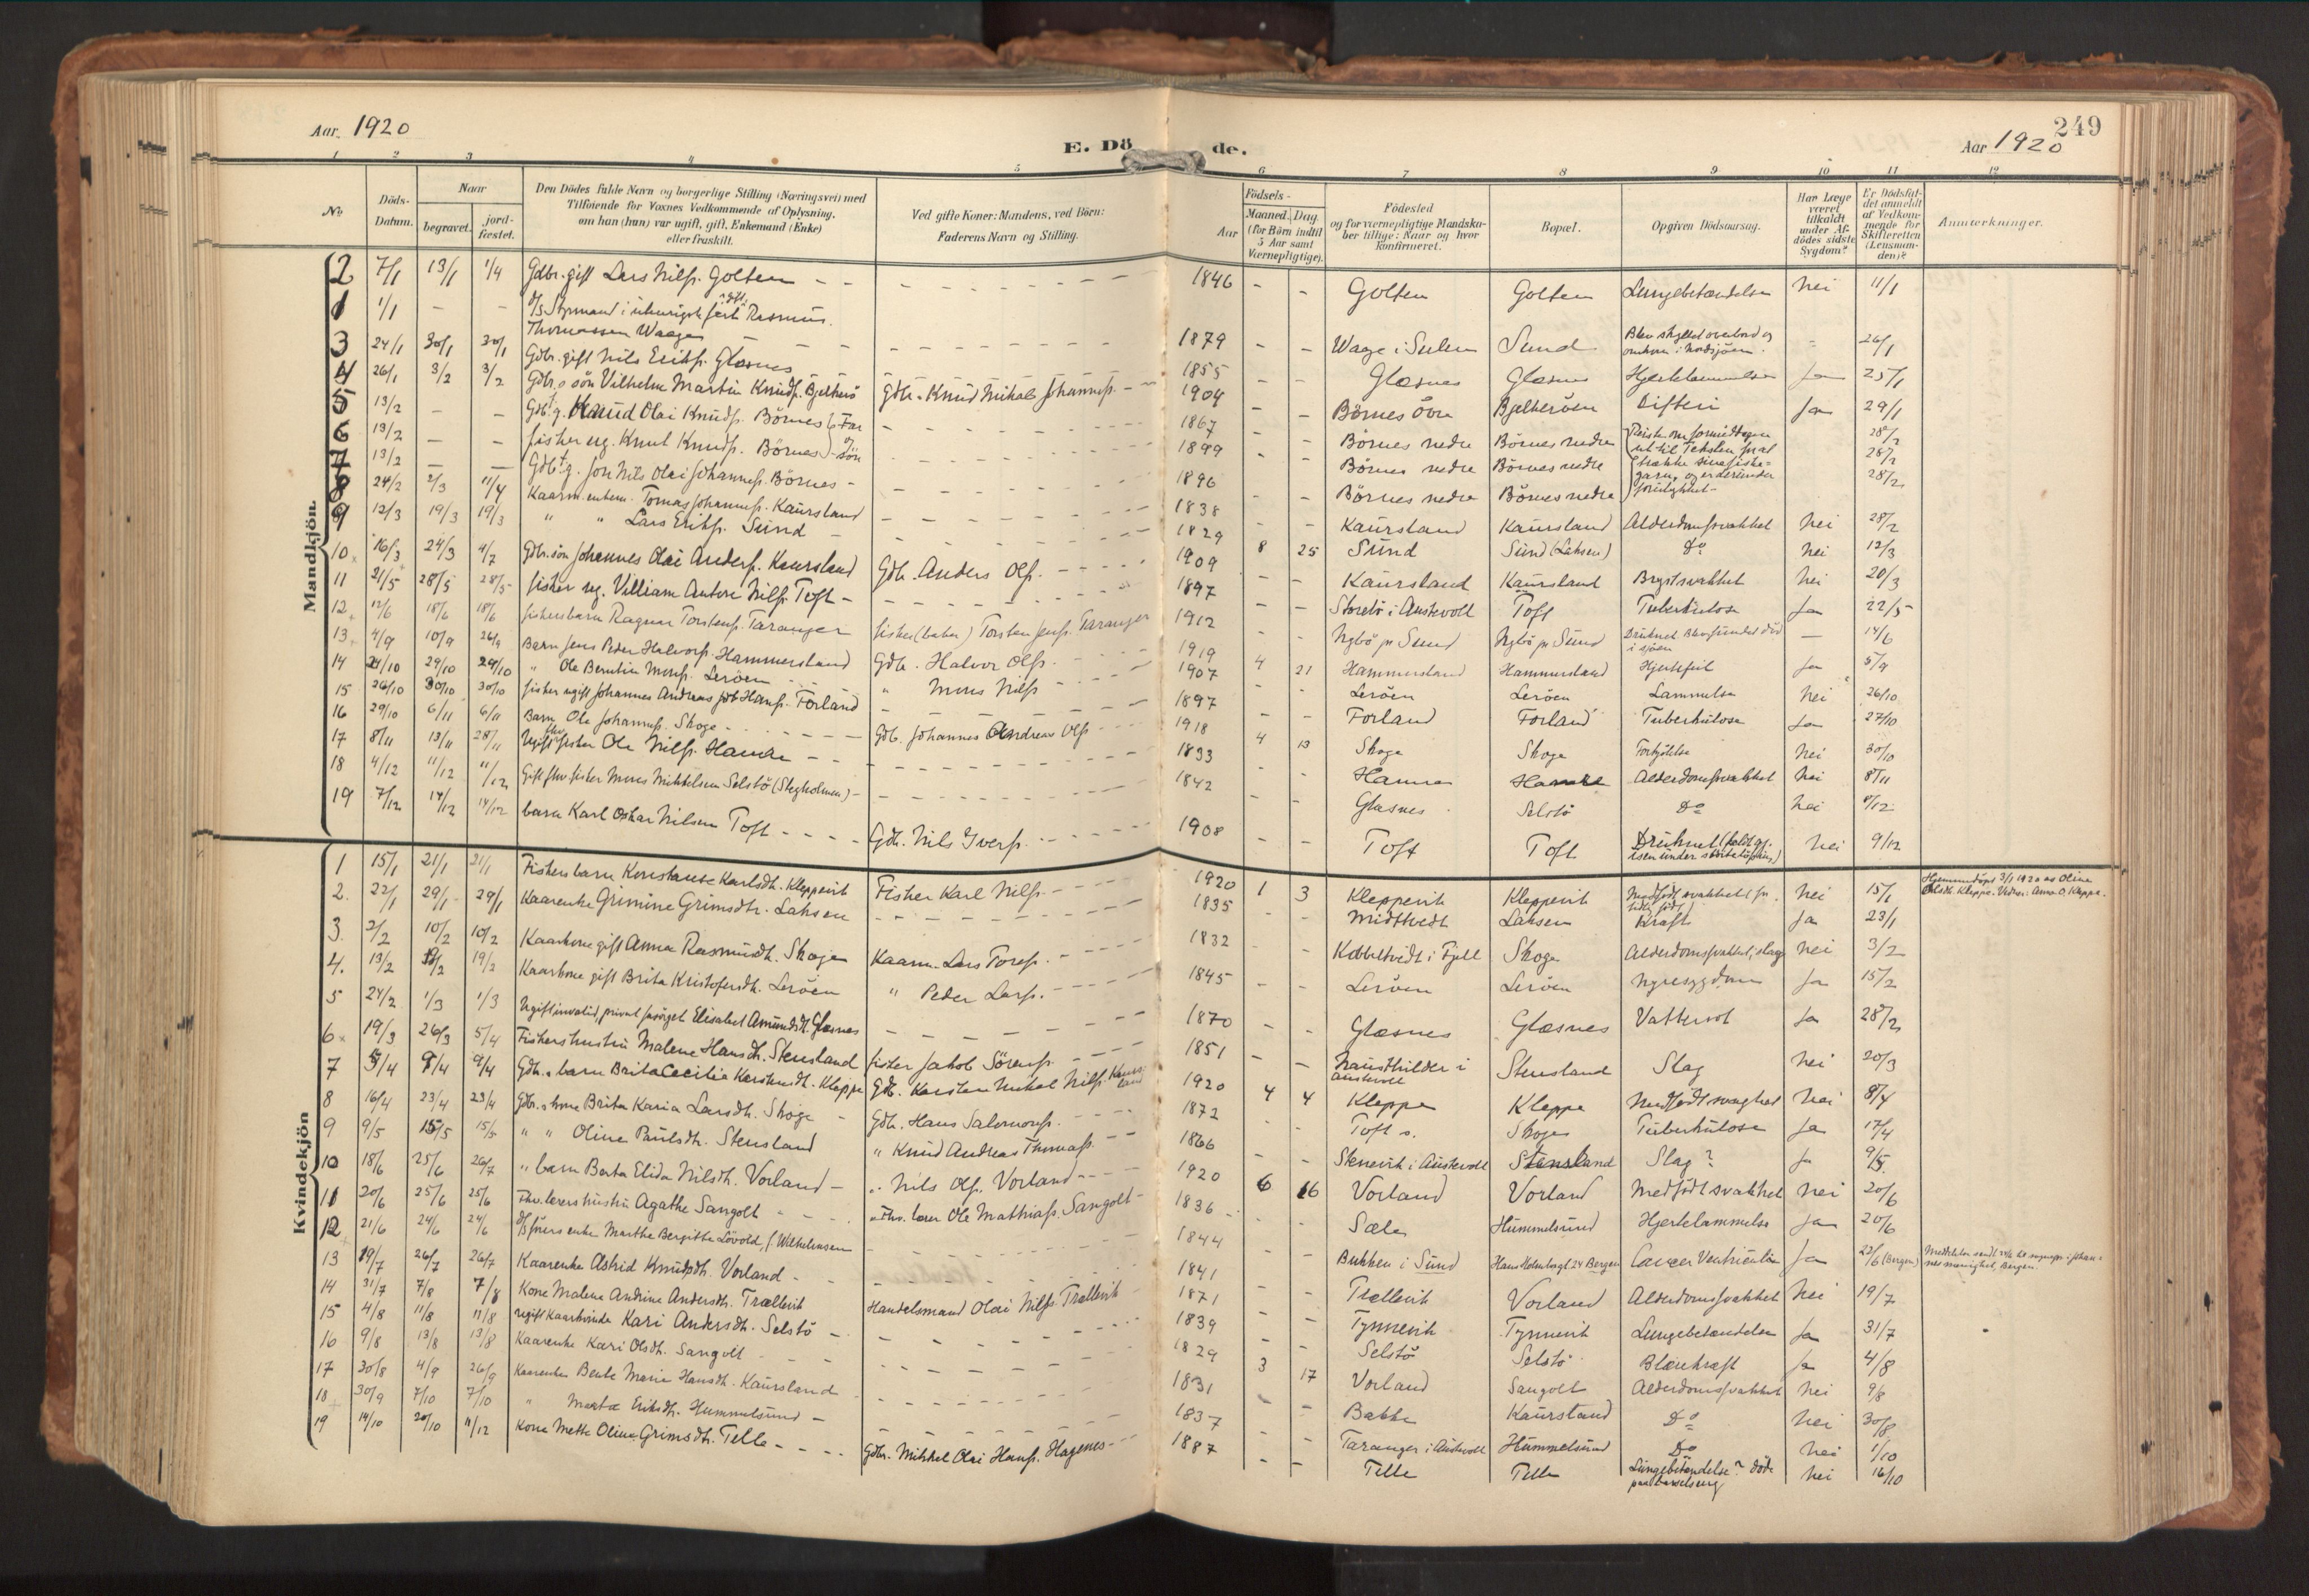 249
Aar 1920
E. Dö
de.
Aar 1920
1 2 3 4 5 6 7 8 9 10 11 12
No
Döds-Datum.
Naar
begravet.
jord-fæstet.
Den Dödes fulde Navn og borgerlige Stilling (Næringsvei) med
Tilföiende for Voxnes Vedkommende af Oplysning,
om han (hun) var ugift, gift, Enkemand (Enke)
eller fraskilt.
Ved gifte Koner: Mandens, ved Börn:
Faderens Navn og Stilling.
Födsels-
Aar
Maaned. Dag.
(for Börn indtil
5 Aar samt
Værnepligtige).
Födested
og for værnepligtige Mandska-
ber tillige: Naar og hvor
konfirmeret.
Bopæl.
Opgiven Dödsaarsag.
Har Læge
været
tilkaldt
under Af-
dödes sidste
Sygdom?
Er Dödsfal-
det anmeldt
af Vedkom-
mende for
Skifteretten
(Lensman-
den)?
Anmærkninger.
Mandkjön.
2 7/1 13/1 1/4 Gdbr. gift Lars Nilss. Golten 1846 - - Golten Golten Lungebetændelse nei 11/1
1 1/1 - - Styrmand i Rasmus
Thomassen Waage 1879 - - Waage i Sulen Sund Blev skyllet overbord og
omkom i Nordsjöen.
3 24/1 30/1 30/1 Gdbr. gift Nils Erikss. Glæsnes 1855 - - Glæsnes Glæsnes Hjertelammelse Ja 25/1
4 26/1 3/2 3/2 Gdbr.s sön Vilhelm Martin Knudss. Bjelkerö Gdbr. Knud Mikal Johanness. 1904 - - Börnes övre Bjelkeröen Difteri Ja 29/1
5 13/2 - - Knud Olai Knudss. Börnes Far 1867 - - Börnes nedre Börnes nedre 28/2
6 13/2 - - fisker ug. Knut Knudss. Börnes sön 1899 - - Börnes nedre Börnes nedre 28/2
7 13/2 - - Nils Olai Johanness. Börnes 1896 - - Börnes nedre Börnes nedre 28/2
8 24/2 2/3 11/4 Kaarm. enkem. Tomas Johanness. Kaursland 1838 Kaursland Kaursland Alderdomssvakhet nei 28/2
9 12/3 19/3 19/3 " " Lars Erikss. Sund 1829 - - Sund Sund (Laksen) Do nei 12/3
10 16/3 24/3 4/7 Gdbr. sön Johannes Olai Anderss. Kaursland Gdbr. Anders Olss. 1909 8 25 Kaursland Kaursland Brystsvakhet nei 20/3
11 21/5 28/5 28/5 fisker ug. Villiam Antoni Nilss. Toft 1897 - - Storebö i Austevoll Toft Tuberkulose Ja 22/5
12 12/6 18/6 18/6 fiskers barn Ragnar Torstenss. Taranger fisker (baker) Torsten Jenss. Taranger 1912 - - Nybö pr Sund Nybö pr Sund Druknet Blev fundet död
i sjöen - 14/6
13 4/9 10/9 26/9 Barn Jens Peder Halvorss. Hammersland Gdbr. Halvor Olss. 1919 4 21 Hammersland Hammersland Hjertefeil Ja 5/9
14 24/10 29/10 29/10 " Ole Berntin Monss. Leröen " Mons Nilss. 1907 - - Leröen Leröen Lammelse nei 26/10
15 26/10 30/10 30/10 fisker ugift Johannes Andreas Jakob Hanss. Forland 1897 - - Forland Forland Tuberkulose Ja 27/10
16 29/10 6/11 6/11 Barn Ole Johanness. Skoge Gdb. Johannes Andreas Olss. 1918 4 13 Skoge Skoge Forkjölelse nei 30/10
17 8/11 13/11 28/11 Ugift fhv fisker Ole Nilss. Hamre 1833 - - Hamre Hamre Alderdomssvakhet nei 8/11
18 4/12 11/12 11/12 Gift fhv fisker Mons Mikkelsen Selstö (Stegholmen) 1842 - - Glæsnes Selstö Do nei /12
19 7/12 14/12 14/12 barn Karl Oskar Nilsen Toft Gdb. Nils Iverss. 1908 - - Toft Toft Druknet (faldt gj.
isen under sköiteløpning) nei 9/12
Kvindekjön
1 15/1 21/1 21/1 Fiskers barn Konstanse Karlsdtr. Kleppevik Fisker Karl Nilss. 1920 1 3 Kleppevik Kleppevik Medfödt svakhet nei 15/1 Hjemmedöpt 3/1 1920 av Oline
Olsdtr. Kleppe. Vidne: Anna O. Kleppe.
2. 22/1 29/1 29/1 Kaarenke Grimine Grimsdtr. Laksen 1835 - - Midttvedt Laksen Kræft Ja 23/1
3. 2/2 10/2 10/2 Kaarkone gift Anna Rasmusdtr. Skoge Kaarm. Lars Toress. 1832 - - Kobbeltvedt i Fjell Skoge Alderdomssvakhet, slag nei 3/2
4. 13/2 19/2 19/2 Kaarkone gift Brita Kristofersdtr. Leröen " Peder Larss. 1845 - - Leröen Leröen Nyresygdom Ja 15/2
5 24/2 1/3 1/3 Ugift invalid, privat forsörget Elisabet Amundsdtr. Glæsnes 1870 - - Glæsnes Glæsnes Vattersot Ja 28/2
6 19/3 26/3 5/4 Fiskers hustru Malene Hansdtr. Stensland fisker Jakob Sörenss. 1851 - - Naustkilder i
Austevoll Stensland Slag nei 20/3
7 5/4 9/4 9/4 Gdb.s barn Brita Cecilie Karstensdtr. Kleppe Gdb. Karsten Mikal Nilss. Kaursland 1920 4 4 Kleppe Kleppe Medfödt svaghet nei 8/4
8 16/4 23/4 23/4 Gdbr.s kone Brita Karia Larsdtr. Skoge Gdbr. Hans Salomonss. 1872 - - Toft s. Skoge Tuberkulose Ja 17/4
9 9/5 15/5 15/5 " " Oline Paulsdtr. Stensland " Knud Andreas Thomass. 1866 - - Stenevik i Austevoll Stensland Slag? Ja 9/5
10 18/6 25/6 26/7 " barn Berta Elida Nilsdtr. Vorland " Nils Olss. Vorland 1920 6 16 Vorland Vorland Medfödt svakhet nei 20/6
11 20/6 25/6 25/6 Fhv. lærers hustru Agathe Sangolt Fhv. lærer Ole Mathiass. Sangolt 1836 - - Sæle Hummelsund Hjertelammelse Ja 20/6
12 21/6 24/6 24/6 enke Marthe Bergitte Lövold, f. Wilhelmsen 1844 Bukken i Sund 24 Bergen Cancer Ventriculi Ja 22/6 (Bergen)
13 19/7 26/7 26/7 Kaarenke Astrid Knudsdtr. Vorland 1841 - Trællevik Vorland Alderdomssvakhet nei 19/7
14 31/7 7/8 7/8 Kone Malene Andrine Andersdtr. Trællevik Handelsmand Olai Nilss. Trællevik 1871 Tynnevik Tynnevik Lungebetændelse Ja 31/7
15 4/8 11/8 11/8 ugift Kaarkvinde Kari Andersdtr. Selstö 1839 - - Selstö Selstö Blærekræft Ja 4/8
16 9/8 13/8 13/8 Kaarenke Kari Olsdtr. Sangolt 1829 3 17 Vorland Sangolt Alderdomssvakhet nei 9/8
17 30/8 4/9 26/9 Kaarenke Berte Marie Hansdtr. Kaursland 1831 - - Bakke Kaursland Do nei 30/8
18 30/9 7/10 7/10 " Marta Eriksdtr. Hummelsund 1837 - - Taranger i Austevoll Hummelsund Do nei 1/10
19 14/10 20/10 11/12 Kone Mette Oline Grimsdtr. Telle Gdbr. Mikkel Olai Hanss. Hagenes 1887 - - Telle Telle Lungebetændelse? döde
paa barselseng nei 16/10